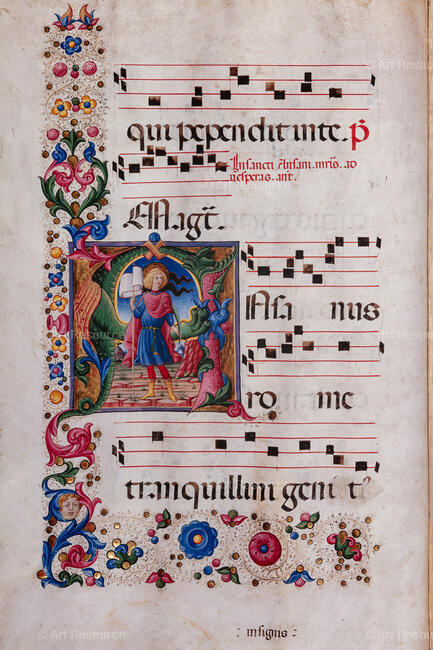 qui pependit in te. p̄
In sancti Ansani. mris. ad
vesperas. ant.
Ad Magt̄.
Ansa nus
ro me
tranquillini geni t9
: insignis :
© Art Resource